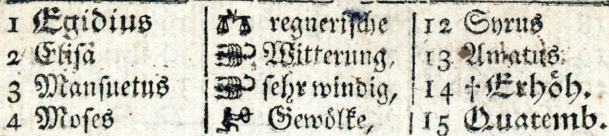 1 Egidius ♎ regnerische 12 Syrus
2 Elisa ♏ Witterung, 13 Amatus.
3 Mansuetus ♏ sehr windig, 14 † Erhöh.
4 Moses ♐ Gewölke, 15 Quatemb.